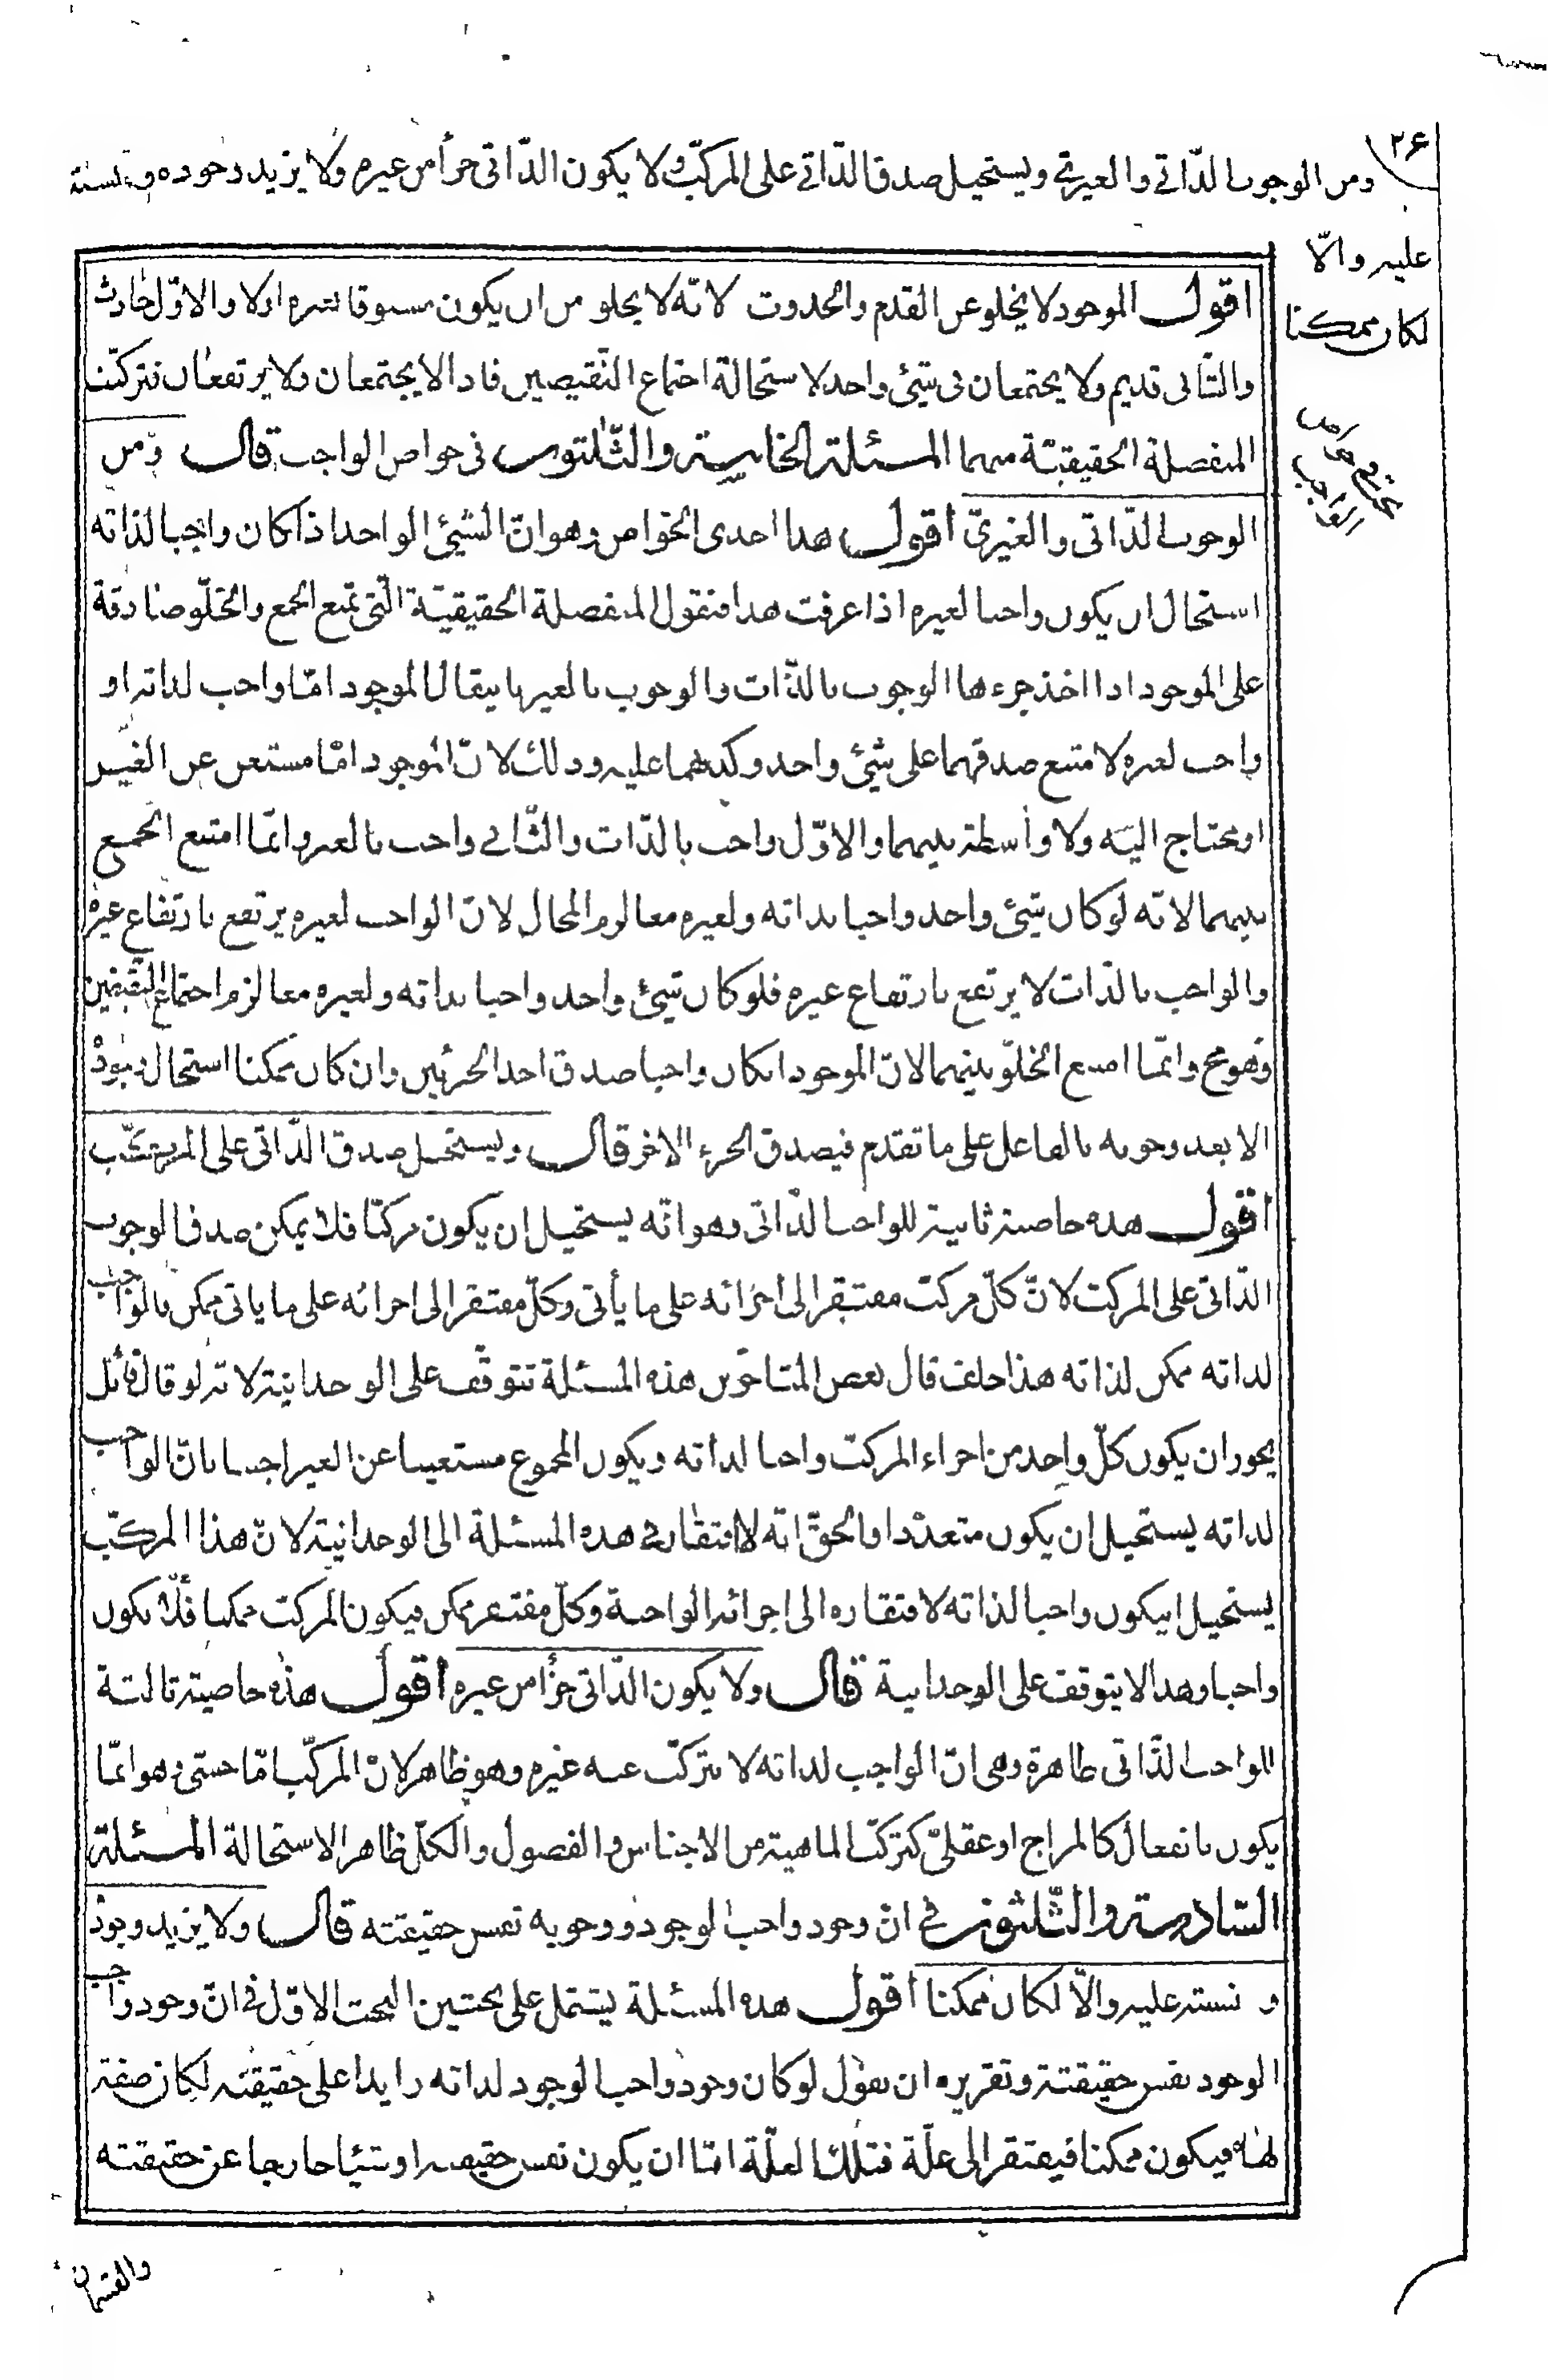 ۲۶
ومن الوجوب الذّاتي والغيري ويستحيل صدق الذّاتي على المركّب ولا يكون الذّاتي جزأ من غيره ولا يزيد وجوده ونسبته
عليه والّا
لكان ممكنا
في خواص
الواجب
اقول الموجود لا يخلو عن القدم والحدوث لانّه لا يخلو من ان يكون مسبوقا بغيره اولا والاوّل حادث
والثّاني قديم ولا يجتمعان في شيئ واحد لاستحالة اجتماع النّقيضين فاذا لا يجتمعان ولا يرتفعان فتركّبت
المنفصلة الحقيقيّة منهما المسئلة الخامسة والثّلثون في خواص الواجب قال ومن
الوجوب الذّاتي والغيريّ اقول هذا احدى الخواص وهو انّ الشيئ الواحد اذا كان واجبا لذاته
استحال ان يكون واجبا لغيره اذا عرفت هذا فنقول المنفصلة الحقيقيّة الّتي تمنع الجمع والخلوّ صادقة
على الموجود اذا اخذ جزءها الوجوب بالذّات والوجوب بالغير بان يقال الموجود امّا واجب لذاته او
واجب لغيره لامتناع صدقهما على شيئ واحد وكذبهما عليه وذلك لانّ الموجود امّا مستغن عن الغير
او محتاج اليه ولا واسطة بينهما والاوّل واجب بالذّات والثّاني واجب بالغير وانّما امتنع الجمع
بينهما لانّه لو كان شيئ واحد واجبا بذاته ولغيره معا لزم المحال لانّ الواجب لغيره يرتفع بارتفاع غيره
والواجب بالذّات لا يرتفع بارتفاع غيره فلو كان شيئ واحد واجبا بذاته ولغيره معا لزم اجتماع النّقيضين
وهو مح وانّما امتنع الخلوّ بينهما لانّ الموجود ان كان واجبا صدق احد الجزئين وان كان ممكنا استحال وجوده
الا بعد وجوبه بالفاعل على ما تقدم فيصدق الجزء الاخر قال ويستحيل صدق الذّاتي على المركّب
اقول هذه خاصة ثانية للواجب الذّاتي وهو انّه يستحيل ان يكون مركبّا فلا يمكن صدق الوجوب
الذّاتي على المركب لانّ كلّ مركب مفتقر الى اجزائه على ما يأتي وكلّ مفتقر الى اجزائه على ما ياتي ممكن فالواجب
لذاته ممكن لذاته هذا خلف قال بعض المتاخّرين هذه المسئلة تتوقّف على الوحدانية لانّه لو قال قائل
يجوز ان يكون كلّ واحد من اجزاء المركب واجبا لذاته ويكون المجموع مستغنيا عن الغير اجبنا بانّ الواجب
لذاته يستحيل ان يكون متعدّدا والحقّ انّه لا افتقار في هذه المسئلة الى الوحدانية لانّ هذا المركّب
يستحيل ان يكون واجبا لذاته لافتقاره الى اجزائه الواجبة وكلّ مفتقر ممكن فيكون المركب ممكنا فلا يكون
واجبا وهذا لا يتوقف على الوحدانية قال ولا يكون الذّاتي جزأ من غيره اقول هذه خاصية ثالثة
للواجب الذّاتي ظاهرة وهي انّ الواجب لذاته لا يتركّب عنه غيره وهو ظاهر لانّ المركّب امّا حسّي وهو انّما
يكون بانفعال كالمزاج او عقليّ كتركّب الماهية من الاجناس والفصول والكلّ ظاهر الاستحالة المسئلة
السّادسة والثّلثون في انّ وجود واجب الوجود ووجوبه نفس حقيقته قال ولا يزيد وجوده
ونسبته عليه والّا لكان ممكنا اقول هذه المسئلة يشتمل على بحثين البحث الاوّل في انّ وجود واجب
الوجود نفس حقيقته وتقريره ان نقول لو كان وجود واجب الوجود لذاته زايدا على حقيقته لكان صفة
لها فيكون ممكنا فيفتقر الى علّة فتلك العلّة امّا ان يكون نفس حقيقته او شيئا خارجا عن حقيقته
والقسمان